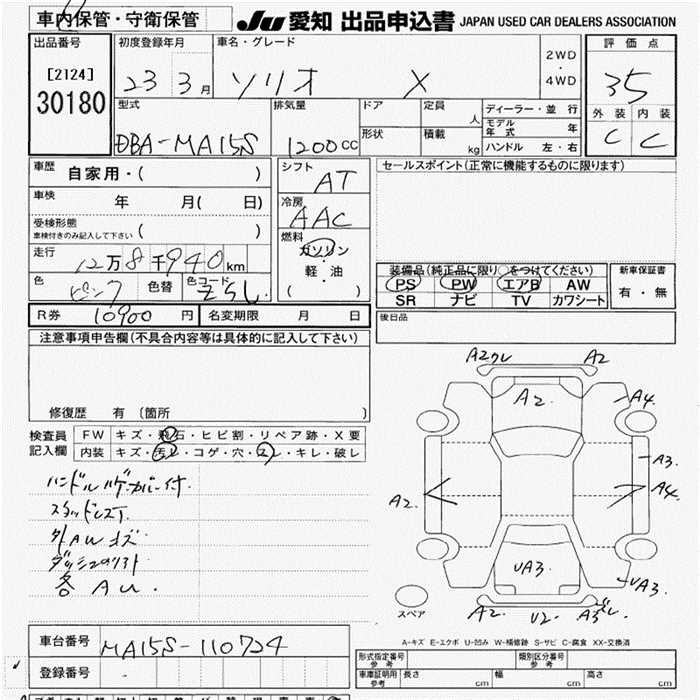 車内保管・守衛保管
JU 愛知 出品申込書 JAPAN USED CAR DEALERS ASSOCIATION
出品番号
[2124]
30180
初度登録年月
23 3月
車名・グレード
ソリオ X
2WD
・
4WD
評価点
35
外装 内装
C C
型式
DBA-MA15S
排気量
1200cc
ドア
形状
定員
人
積載
kg
ディーラー・並行
モデル年式 年
ハンドル 左・右
車歴
自家用・( )
車検
年 月( 日)
受検形態
車検付きのみ記入して下さい ( )
走行
12万8千940km
色
ピンク
色替
色コード
シフト
AT
冷房
AAC
燃料
ガソリン
・
軽・油
( )
セールスポイント(正常に機能するものに限ります)
装備品(純正品に限り○をつけてください)
PS PW エアB AW
SR ナビ TV カワシート
新車保証書
有・無
R券 10900円
名変期限 月 日
後日品
注意事項申告欄(不具合内容等は具体的に記入して下さい)
修復歴 有 (箇所 )
検査員
記入欄
FW キズ・飛石・ヒビ割・リペア跡・X要
内装 キズ・汚レ・コゲ・穴・スレ・キレ・破レ
ハンドルハゲカバー付
スタッドレスT
外AWキズ
各AU.
A2クレ A2
A2
A4
A3
A4
A2
UA3
UA3
A2 U2
スペア
A-キズ E-エクボ U-凹み W-補修跡 S-サビ C-腐食 XX-交換済
車台番号
MA15S-110724
登録番号
型式指定番号
参考
類別区分番号
参考
車庫証明用
参考
長さ cm 幅 cm 高さ cm